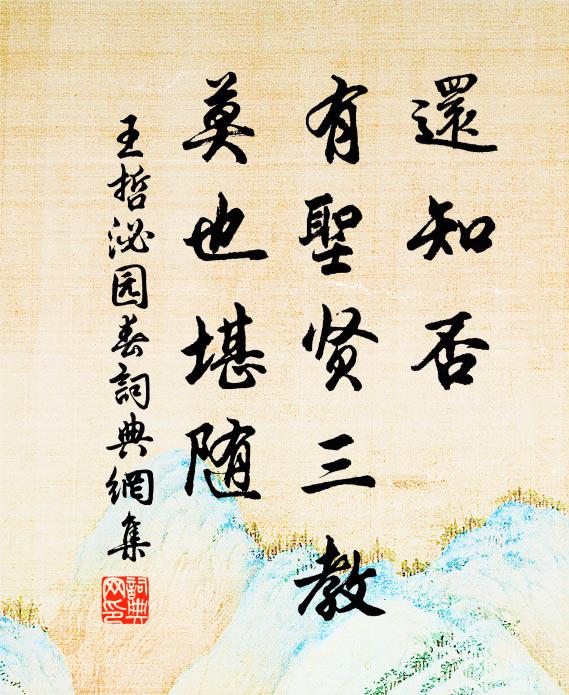 還知否
有聖贤三教
莫也堪随
王哲泌园春詞典網集
詞典网印